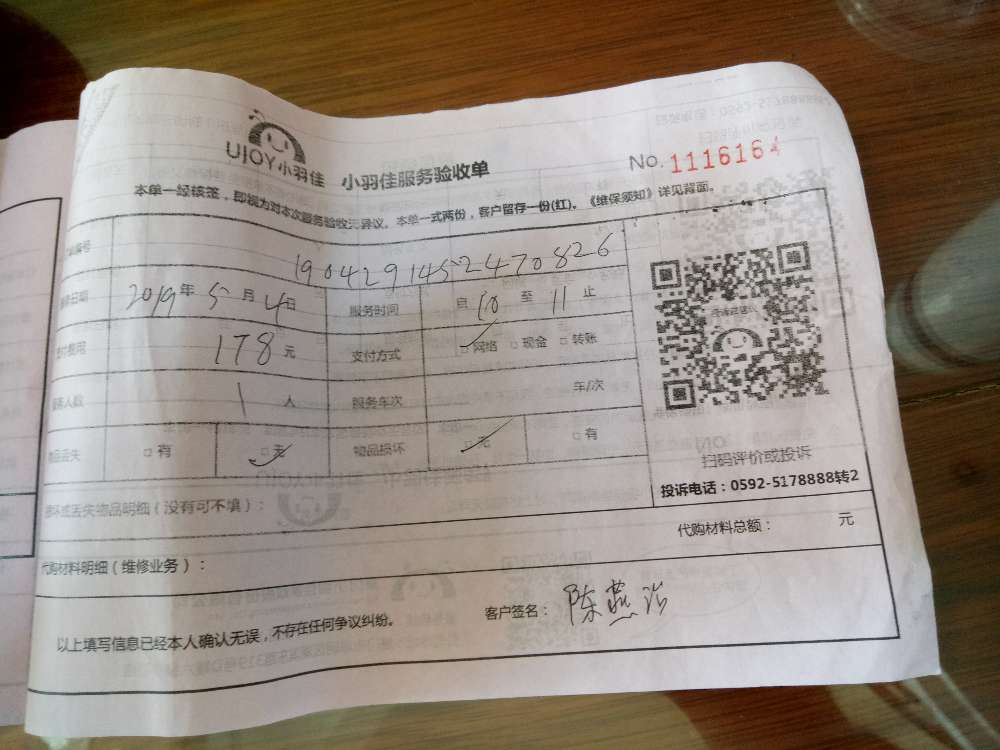 UJOY小羽佳 小羽佳服务验收单 No. 1116164
本单一经核签，即视为对本次服务验收无异议。本单一式两份，客户留存一份(红)。《维保须知》详见背面。
编号 1904291452470826
日期 2019年5月4日 服务时间 自10至11止
费用 178元 支付方式 □网络 □现金 □转账
人数 1人 服务车次 车/次
物品丢失 □有 □无 物品损坏 □无 □有
扫码评价或投诉
投诉电话：0592-5178888转2
损坏或丢失物品明细（没有可不填）：
代购材料明细（维修业务）： 代购材料总额： 元
以上填写信息已经本人确认无误，不存在任何争议纠纷。 客户签名：陈燕治